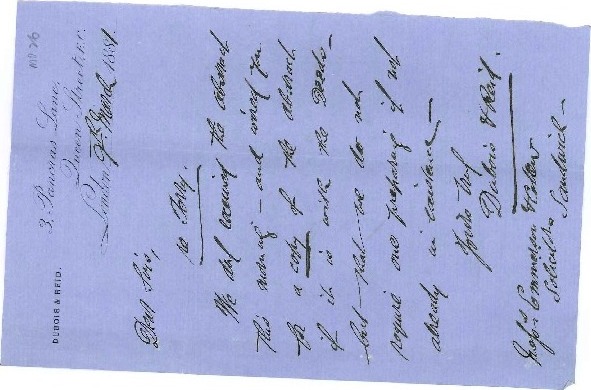 DUBOIS & REID.
3, Pancras Lane,
Queen Street, E.C.
London, 9th March 1881.
Dear Sirs,
re Story.
We duly received the abstract
this morning – and wired you
for a copy of the abstract
if it is with the Deeds –
but that we do not
require one preparing if not
already in existence –
Yours truly
Dubois & Reid.
Messrs
Solicitors Sandwich –